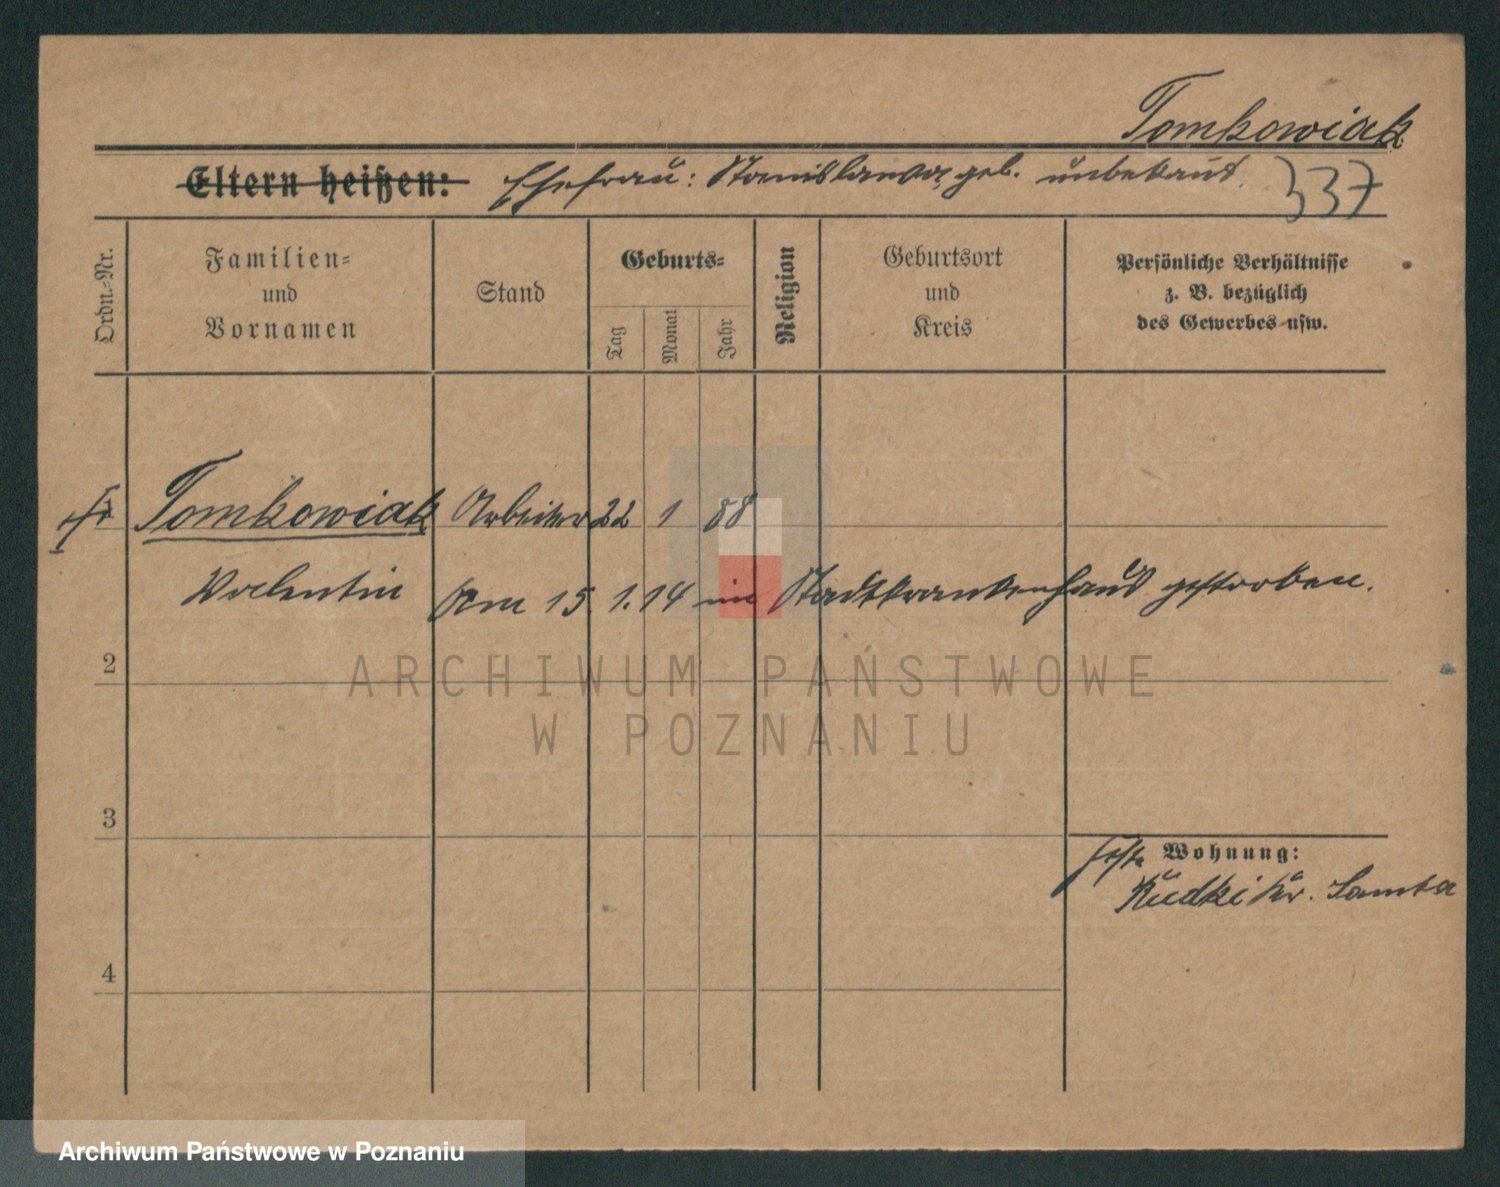 Tomkowiak
Eltern heißen: Ehefrau: Stanislawa, geb. unbekannt.
337
Ordn.-Nr.
Familien-
und
Vornamen
Stand
Geburts-
Tag
Monat
Jahr
Religion
Geburtsort
und
Kreis
Persönliche Verhältnisse
z. B. bezüglich
des Gewerbes usw.
1 Tomkowiak Arbeiter 22 1 88
Valentin Am 15.1.14 im Stadtkrankenhaus gestorben.
2
ARCHIWUM PAŃSTWOWE
W POZNANIU
3
Wohnung:
Rudki Kr. Samter
4
Archiwum Państwowe w Poznaniu